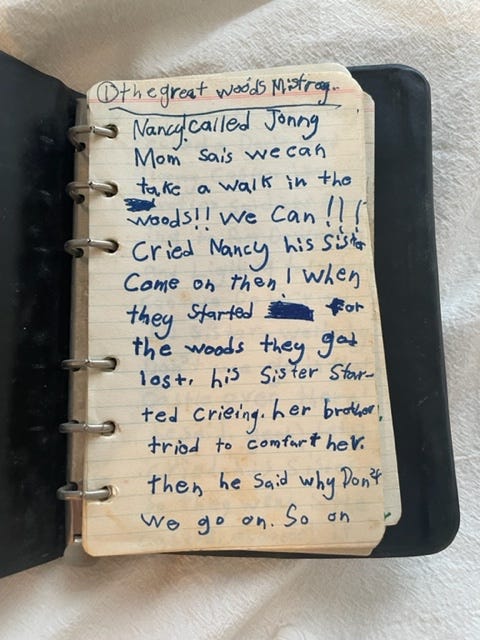 ① the great woods Mistrey.
Nancy! called Jonny
Mom sais we can
take a walk in the
woods!! We Can!!!
Cried Nancy his Sister
Come on then! When
they started for
the woods they gad
lost. his Sister Star-
ted crieing. her brother
tried to comfart her.
then he said why Don't
we go on. So on